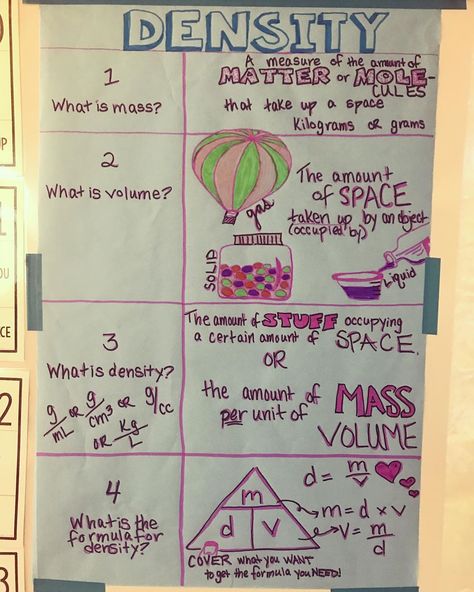 DENSITY
1
What is mass?
A measure of the amount of
MATTER or MOLE-
CULES
that take up a space
Kilograms OR grams
2
What is volume?
The amount
of SPACE
taken up by an object
(occupied by)
gas
SOLID
Liquid
3
What is density?
g/mL OR g/cm³ OR g/cc
OR Kg/L
The amount of STUFF occupying
a certain amount of SPACE.
OR
the amount of MASS
per unit of VOLUME
4
What is the
formula for
density?
m
d v
d = m/v
m = d x v
v = m/d
COVER what you WANT
to get the formula you NEED!
UP
L
OU
CE
2
3